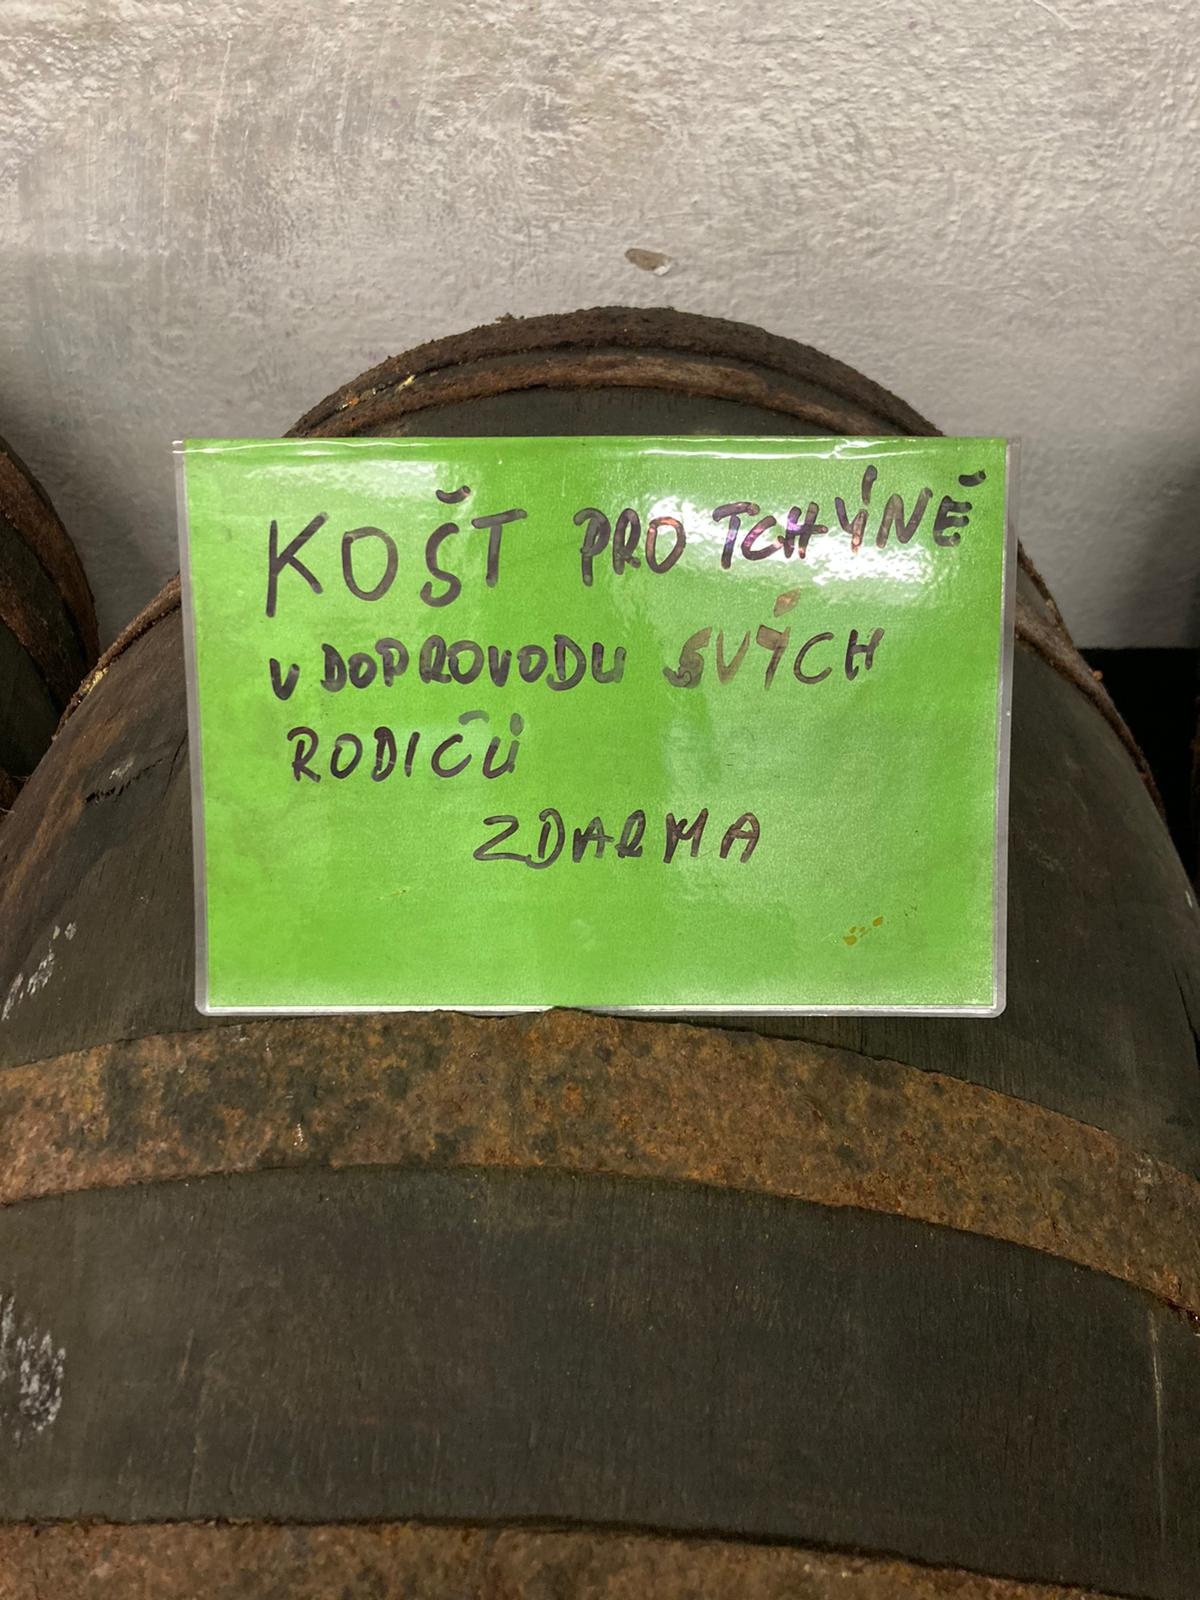 KOŠT PRO TCHÝNĚ
V DOPROVODU SVÝCH
RODIČŮ
ZDARMA